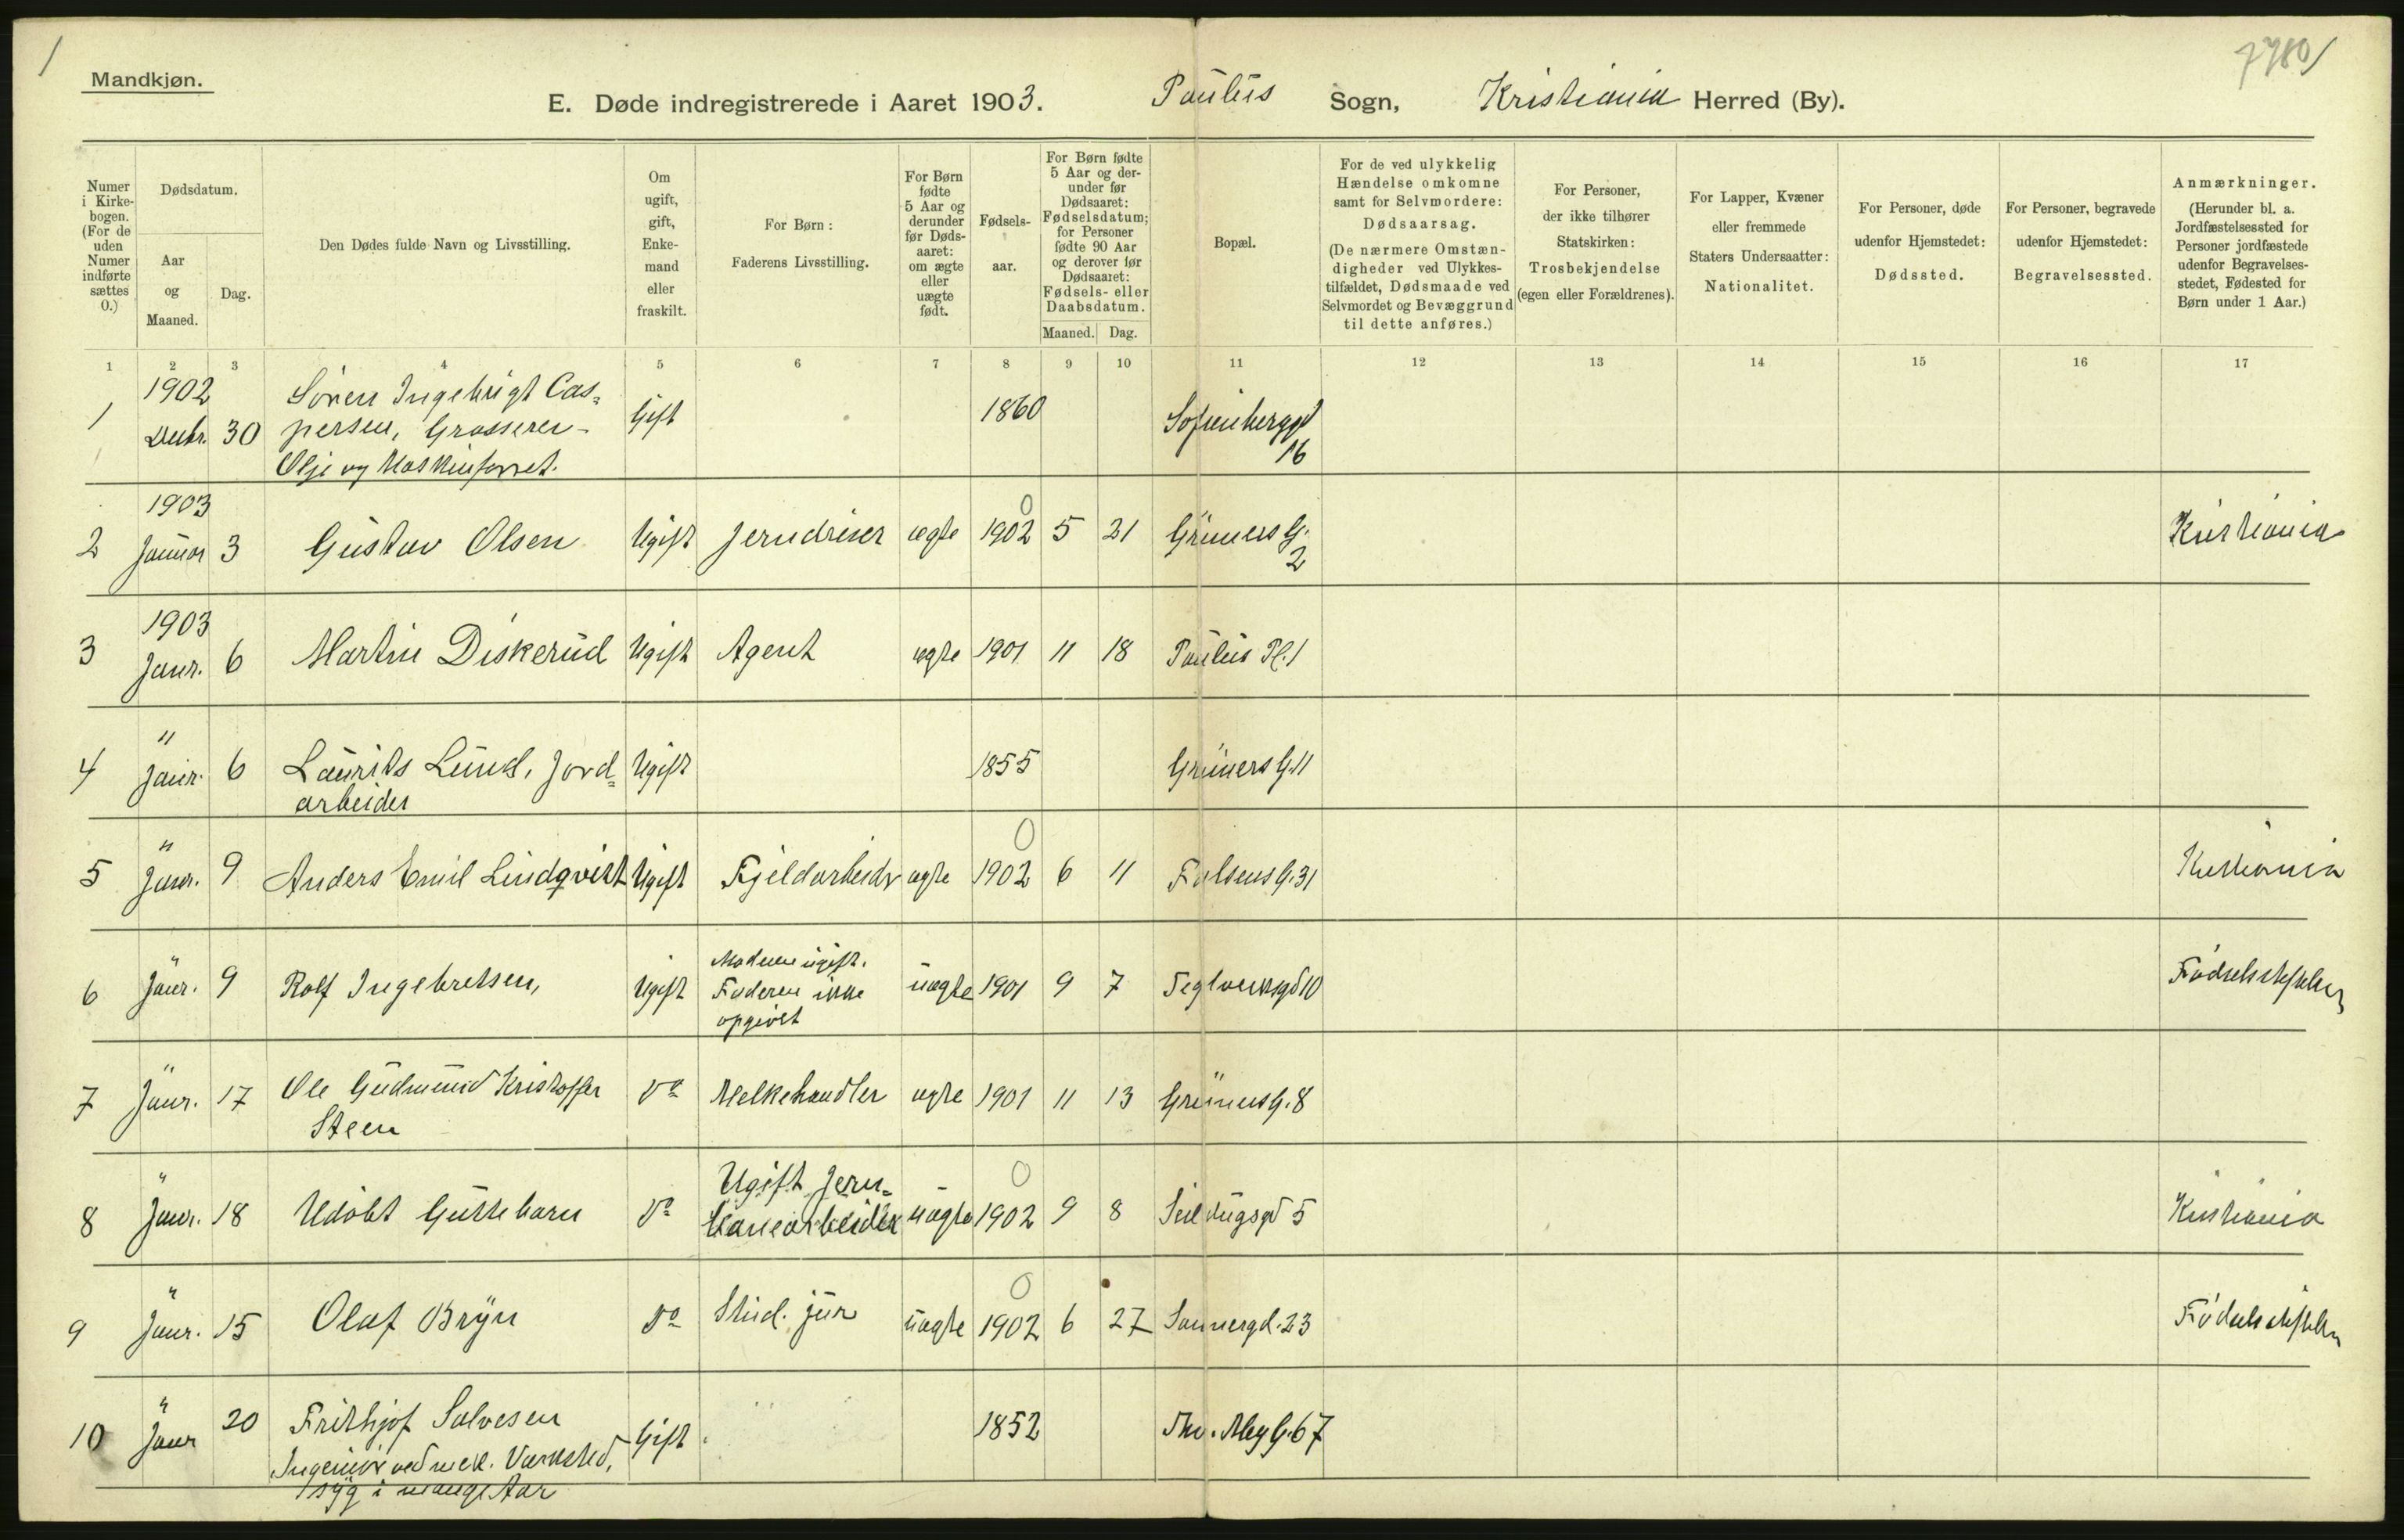 Mandkjøn.
7780
E. Døde indregistrerede i Aaret 1903. Paulus Sogn, Kristiania Herred (By).
Numer i Kirke-bogen. (For de uden Numer indførte sættes 0.)
Dødsdatum.
Aar og Maaned.
Dag.
Den Dødes fulde Navn og Livsstilling.
Om ugift, gift, Enke-mand eller fraskilt.
For Børn: Faderens Livsstilling.
For Børn fødte 5 Aar og derunder før Døds-aaret: om ægte eller uægte født.
Fødsels-aar.
For Børn fødte 5 Aar og der-under før Dødsaaret: Fødselsdatum; for Personer fødte 90 Aar og derover før Dødsaaret: Fødsels- eller Daabsdatum.
Maaned. Dag.
Bopæl.
For de ved ulykkelig Hændelse omkomne samt for Selvmordere: Dødsaarsag. (De nærmere Omstæn-digheder ved Ulykkes-tilfældet, Dødsmaade ved Selvmordet og Bevæggrund til dette anføres.)
For Personer, der ikke tilhører Statskirken: Trosbekjendelse (egen eller Forældrenes).
For Lapper, Kvæner eller fremmede Staters Undersaatter: Nationalitet.
For Personer, døde udenfor Hjemstedet: Dødssted.
For Personer, begravede udenfor Hjemstedet: Begravelsessted.
Anmærkninger. (Herunder bl. a. Jordfæstelsessted for Personer jordfæstede udenfor Begravelses-stedet, Fødested for Børn under 1 Aar.)
1 2 3 4 5 6 7 8 9 10 11 12 13 14 15 16 17
1 1902 Decbr. 30 Sören Ingebrigt Cas=
persen, Grosserer - Gift 1860 Sofienberggd 16
Olje og Maskinforret.
2 1903 Januar 3 Gustav Olsen Ugift Jerndreier ægte 1902 0 5 21 Grüners G. 2 Kristiania
3 1903 Janr. 6 Martin Diskerud Ugift Agent ægte 1901 11 18 Paulus Pl. 1
4 " Janr. 6 Laurits Lund, Jord= Ugift 1855 Grüners G. 11
arbeider
5 " Janr. 9 Anders Emil Lindqvist Ugift Fjeldarbeider ægte 1902 0 6 11 Falsens G. 31 Kristiania
6 " Janr. 9 Rolf Ingebretsen, Ugift Moderen ugift.
Faderen ikke
opgivet uægte 1901 9 7 Teglverksgd 10 Fødselsstiftelsen
7 " Janr. 17 Ole Gudmund Kristoffer
Steen do Melkehandler ægte 1901 11 13 Grüners G. 8
8 " Janr. 18 Udöbt Guttebarn do Ugift Jern=
banearbeider uægte 1902 0 9 8 Seildugsgd 5 Kristiania
9 " Janr. 15 Olaf Bryn do Stud. jur uægte 1902 0 6 27 Sannergd. 23 Fødselsstiftelsen
10 " Janr 20 Frithjof Salvesen
Ingeniør ved mek. Værksted,
syg i mange Aar Gift 1852 Thv. Mey G. 67